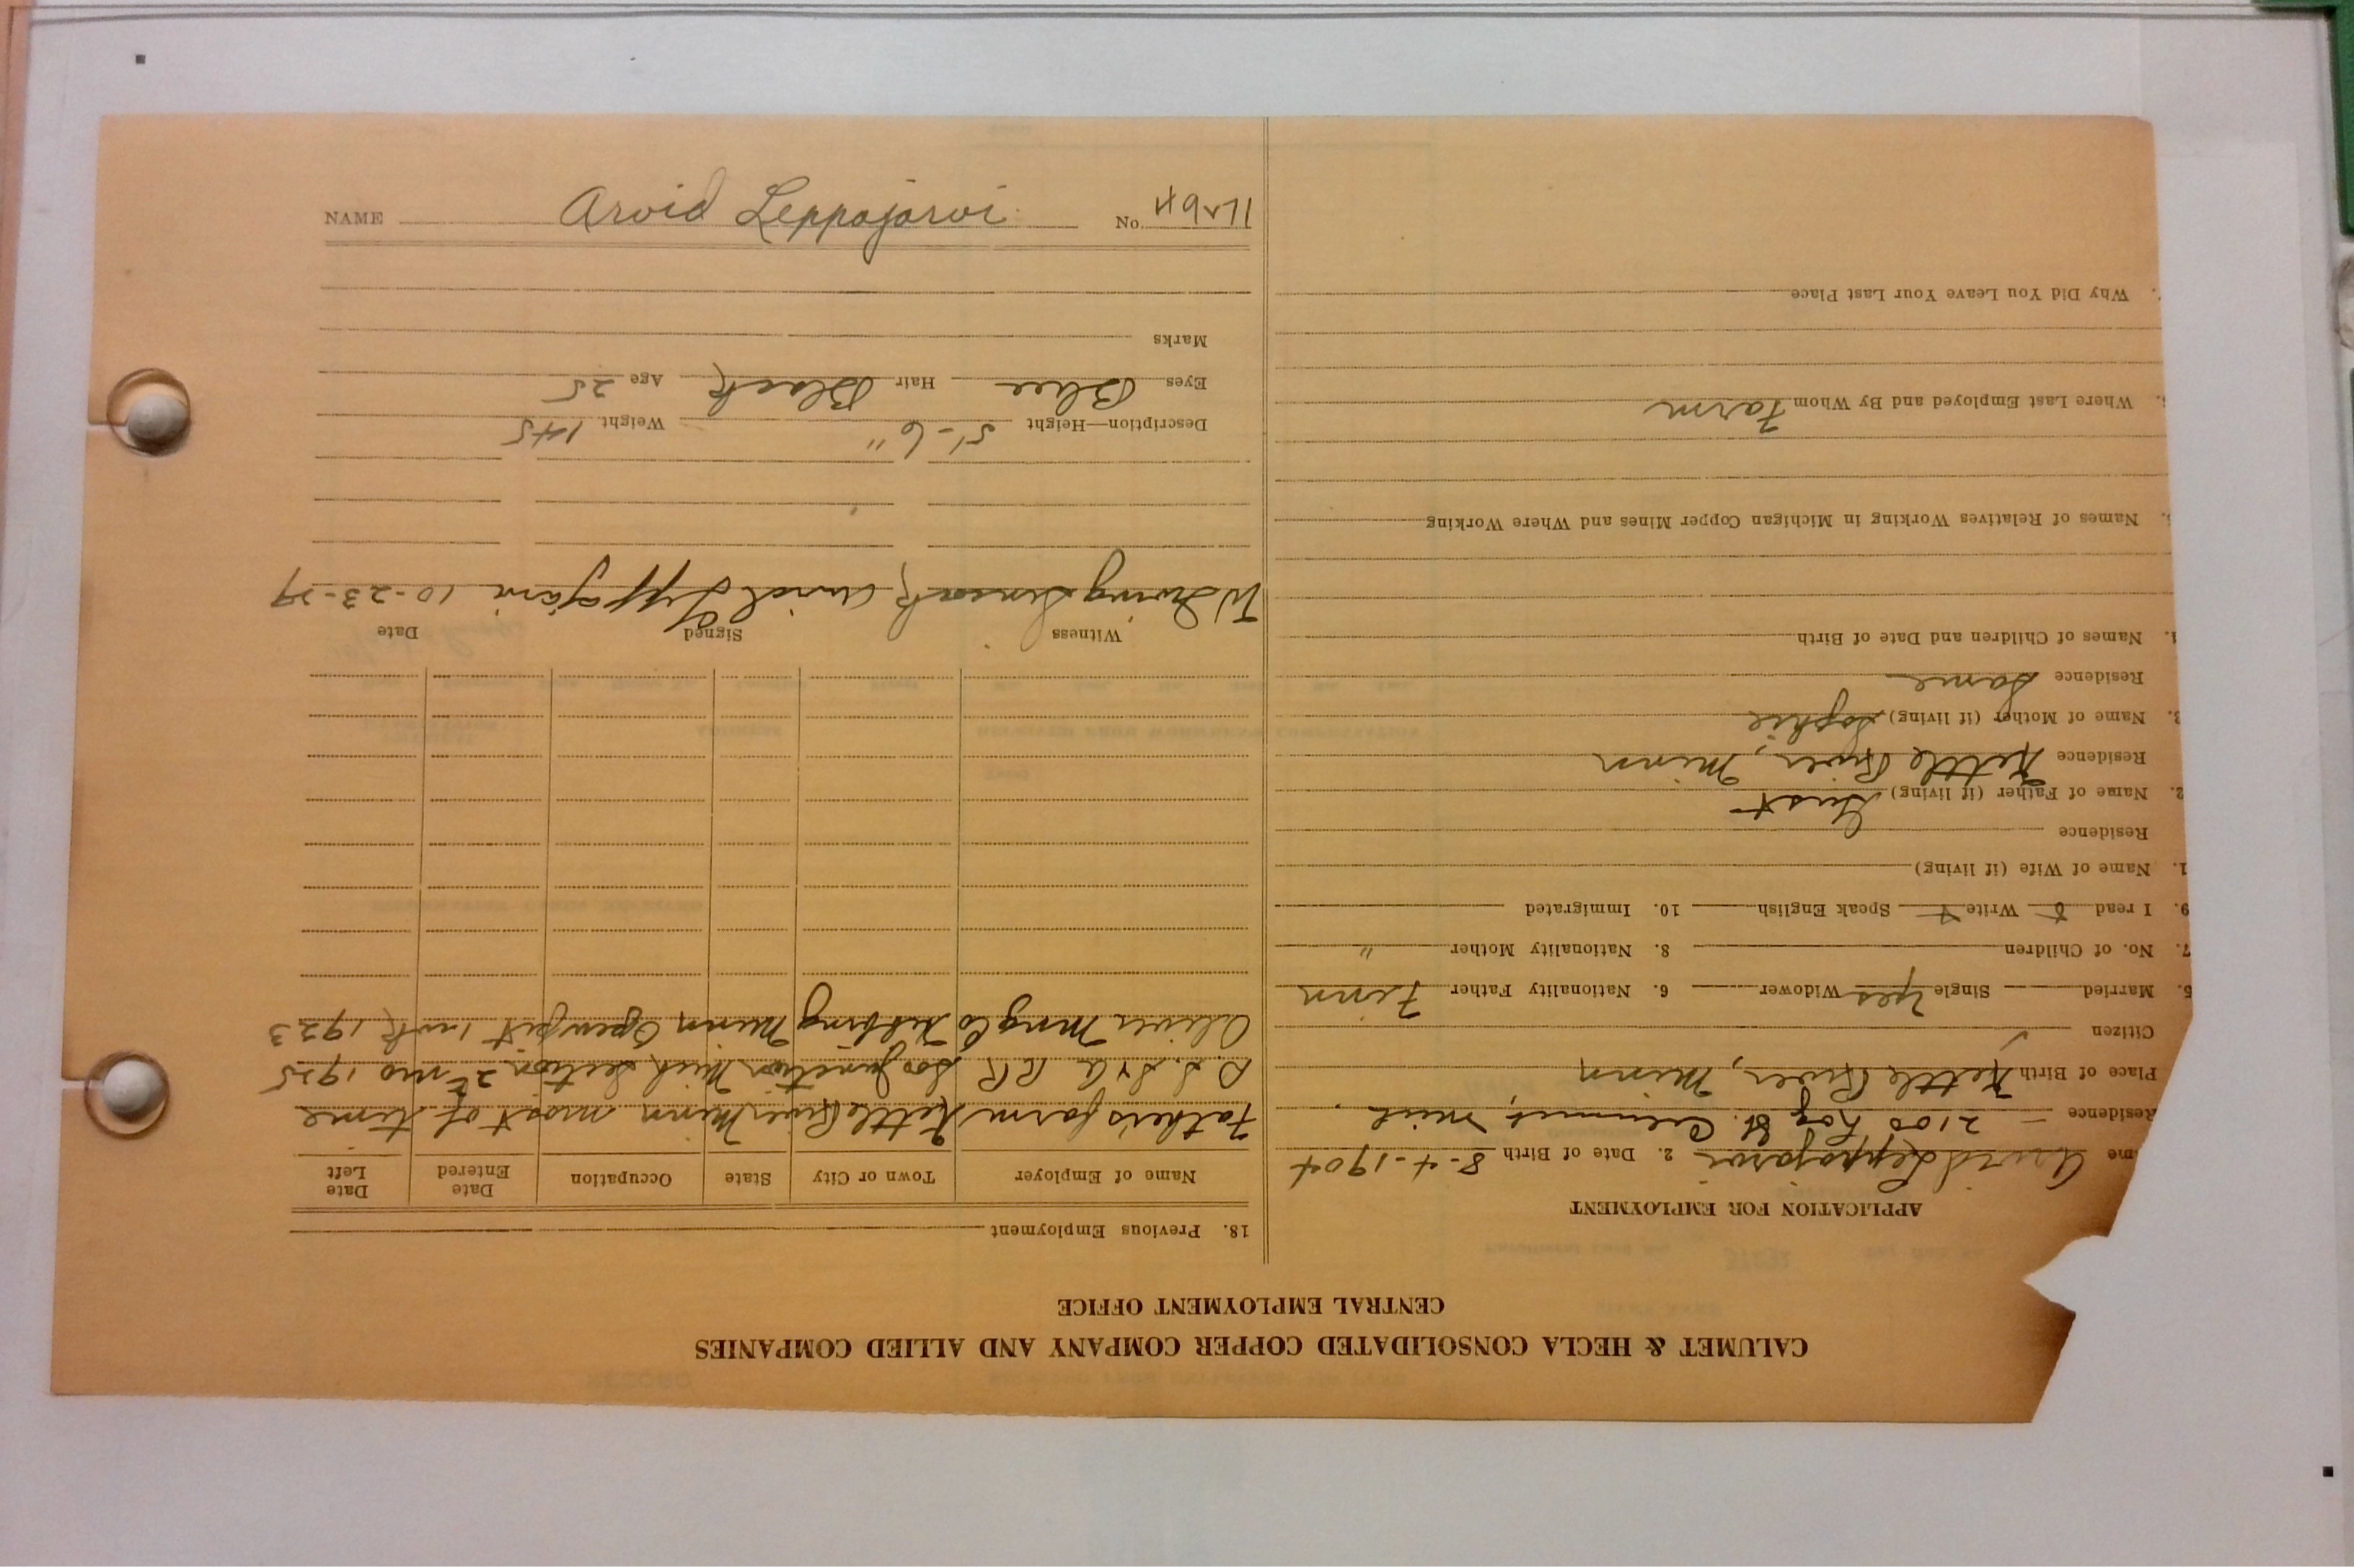 CALUMET & HECLA CONSOLIDATED COPPER COMPANY AND ALLIED COMPANIES
CENTRAL EMPLOYMENT OFFICE
APPLICATION FOR EMPLOYMENT
me Arvid Leppajarvi 2. Date of Birth 8-4-1904
Residence 2100 St. Calumet, Mich.
Place of Birth Kettle River, Minn
Citizen ✓
5. Married Single Yes Widower 6. Nationality Father Finn
7. No. of Children 8. Nationality Mother "
9. I read Write Speak English 10. Immigrated
1. Name of Wife (if living)
Residence
2. Name of Father (if living) Gust
Residence Kettle River, Minn
3. Name of Mother (if living) Sophie
Residence Same
4. Names of Children and Date of Birth
. Names of Relatives Working in Michigan Copper Mines and Where Working
. Where Last Employed and By Whom Farm
. Why Did You Leave Your Last Place
18. Previous Employment
Name of Employer Town or City State Occupation Date Entered Date Left
Father's farm Kettle River Minn most of time
D.S.S.&A RR Soo Junction Mich Section 2 mo 1925
Oliver Mng Co Hibbing Minn Open pit 1 wk 1923
Witness Signed Date
Arvid Leppajarvi 10-23-29
Description—Height 5'-6" Weight 145
Eyes Blue Hair Black Age 25
Marks
NAME Arvid Leppajarvi No. 11264